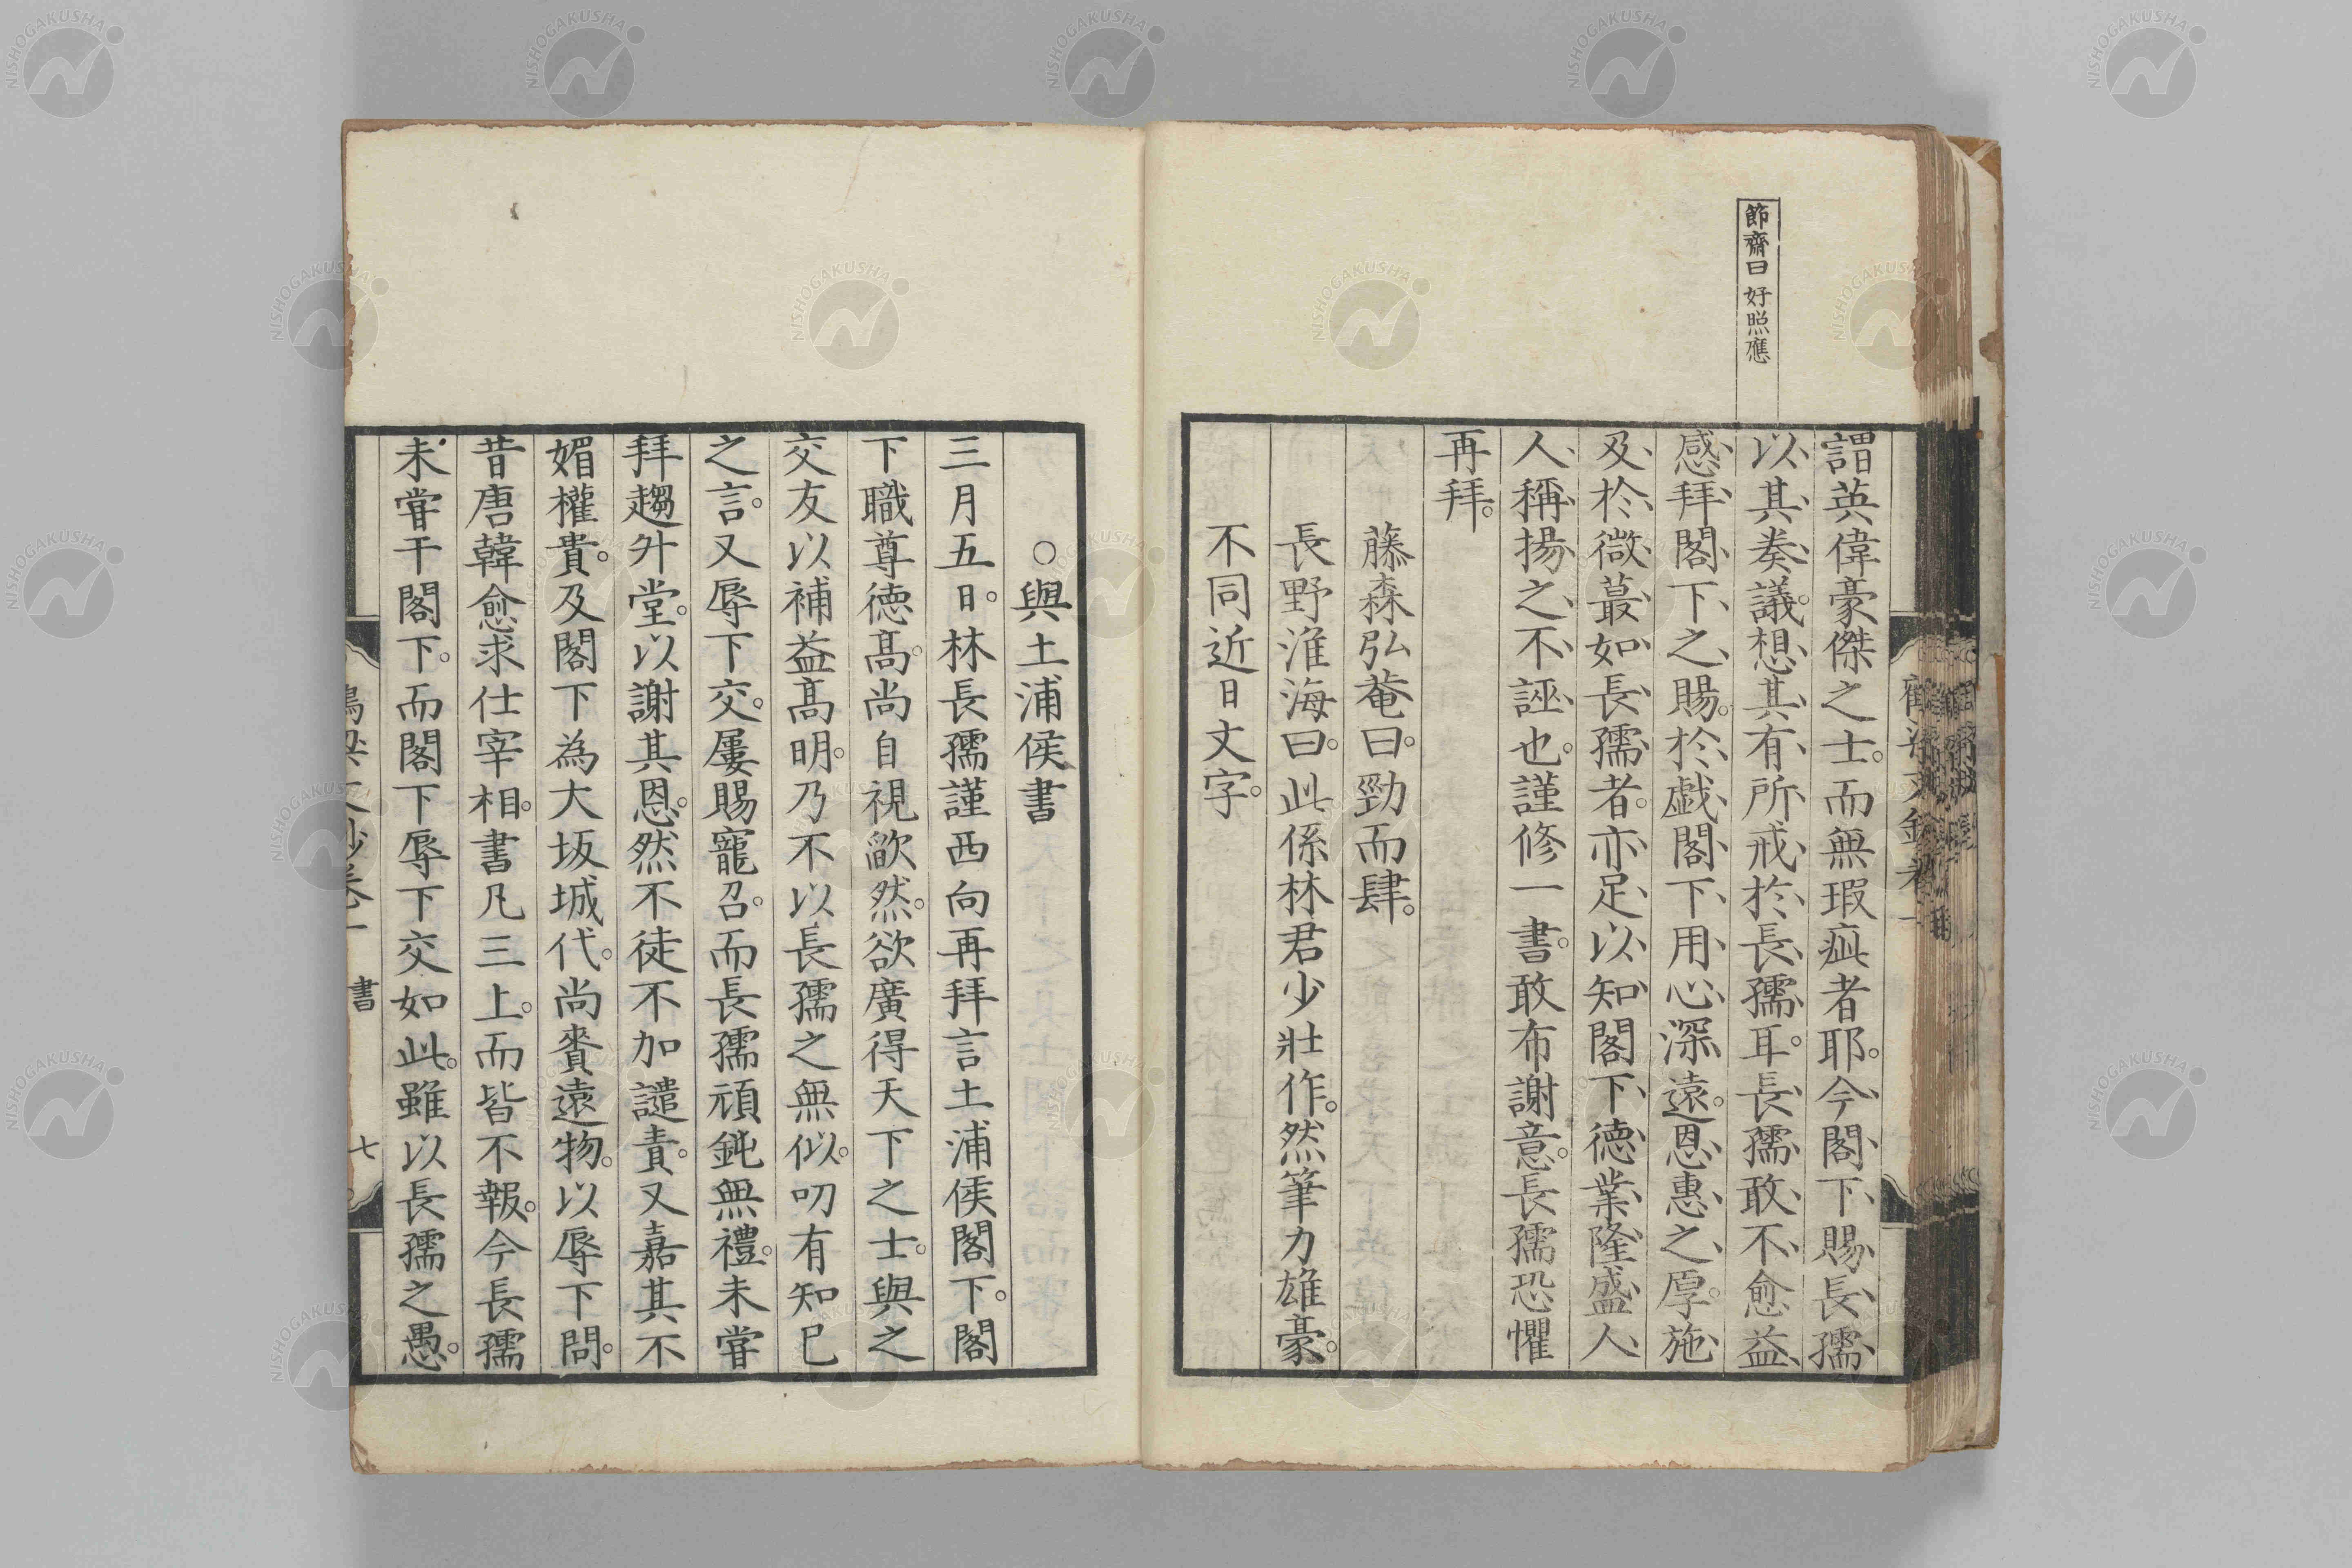 節齋曰好照應
謂英偉豪傑之士。而無瑕疵者耶。今閣下賜長孺
以其奏議。想其有所戒於長孺耳。長孺敢不愈益
感拜閣下之賜。於戲閣下用心深遠。恩惠之厚。施
及於微蕞如長孺者。亦足以知閣下德業隆盛人
人稱揚之不誣也。謹修一書。敢布謝意。長孺恐懼
再拜。
藤森弘菴曰。勁而肆。
長野淮海曰。此係林君少壯作。然筆力雄豪。
不同近日文字。
○與土浦侯書
三月五日。林長孺謹西向再拜言土浦侯閣下。閣
下職尊德高。尚自視歉然。欲廣得天下之士。與之
交友以補益高明。乃不以長孺之無似。叨有知己
之言。又辱下交。屢賜寵召。而長孺頑鈍無禮。未甞
拜趨升堂。以謝其恩。然不徒不加譴責。又嘉其不
媚權貴。及閣下為大坂城代。尚賚遠物。以辱下問。
昔唐韓愈求仕宰相。書凡三上。而皆不報。今長孺
未甞干閣下。而閣下辱下交如此。雖以長孺之愚。
書
七
NISHOGAKUSHA